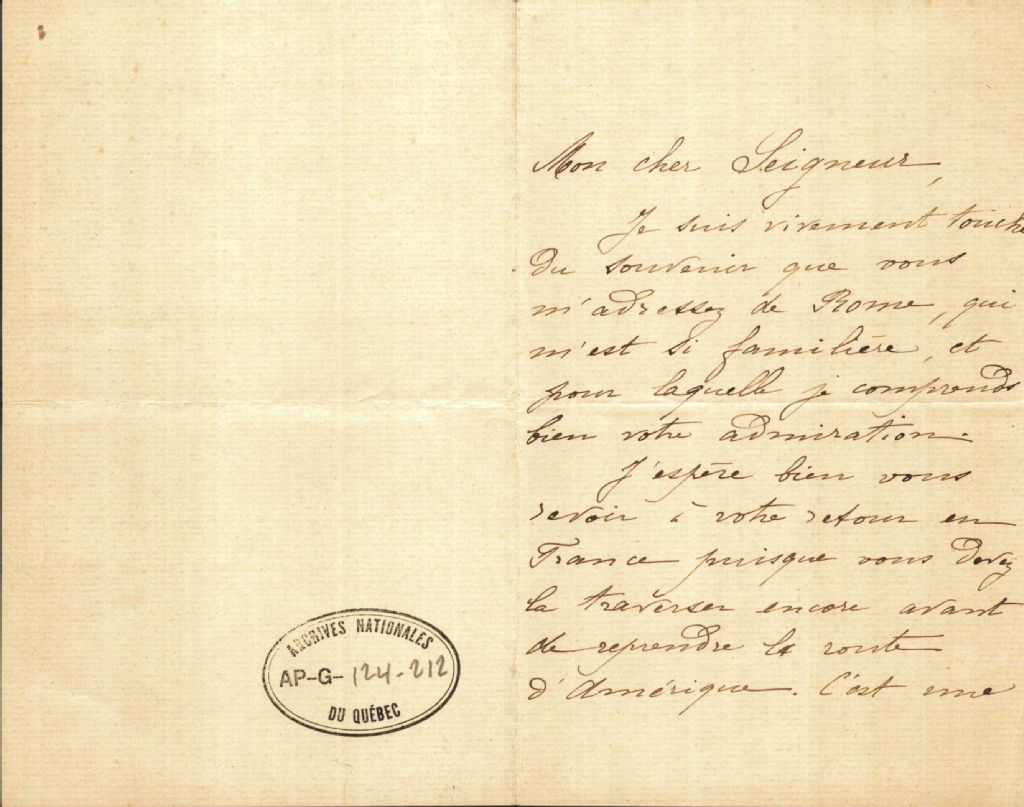 Mon cher Seigneur,
Je suis vivement touché
du souvenir que vous
m'adressez de Rome, qui
m'est si familière, et
pour laquelle je comprends
bien votre admiration.
J'espère bien vous
revoir à votre retour en
France puisque vous devez
la traverser encore avant
de reprendre la route
d'Amérique. C'est une
ARCHIVES NATIONALES
AP-G-124-212
DU QUÉBEC